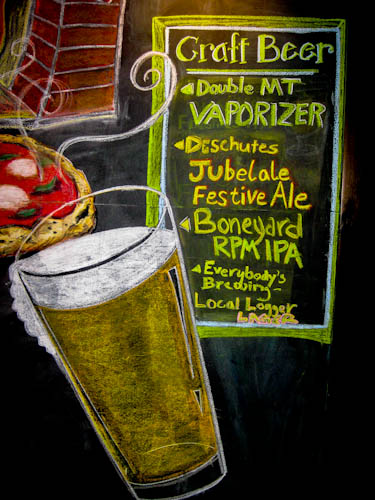 Craft Beer
Double MT
VAPORIZER
Deschutes
Jubelale
Festive Ale
Boneyard
RPM IPA
Everybody's
Brewing -
Local Logger
LAGER